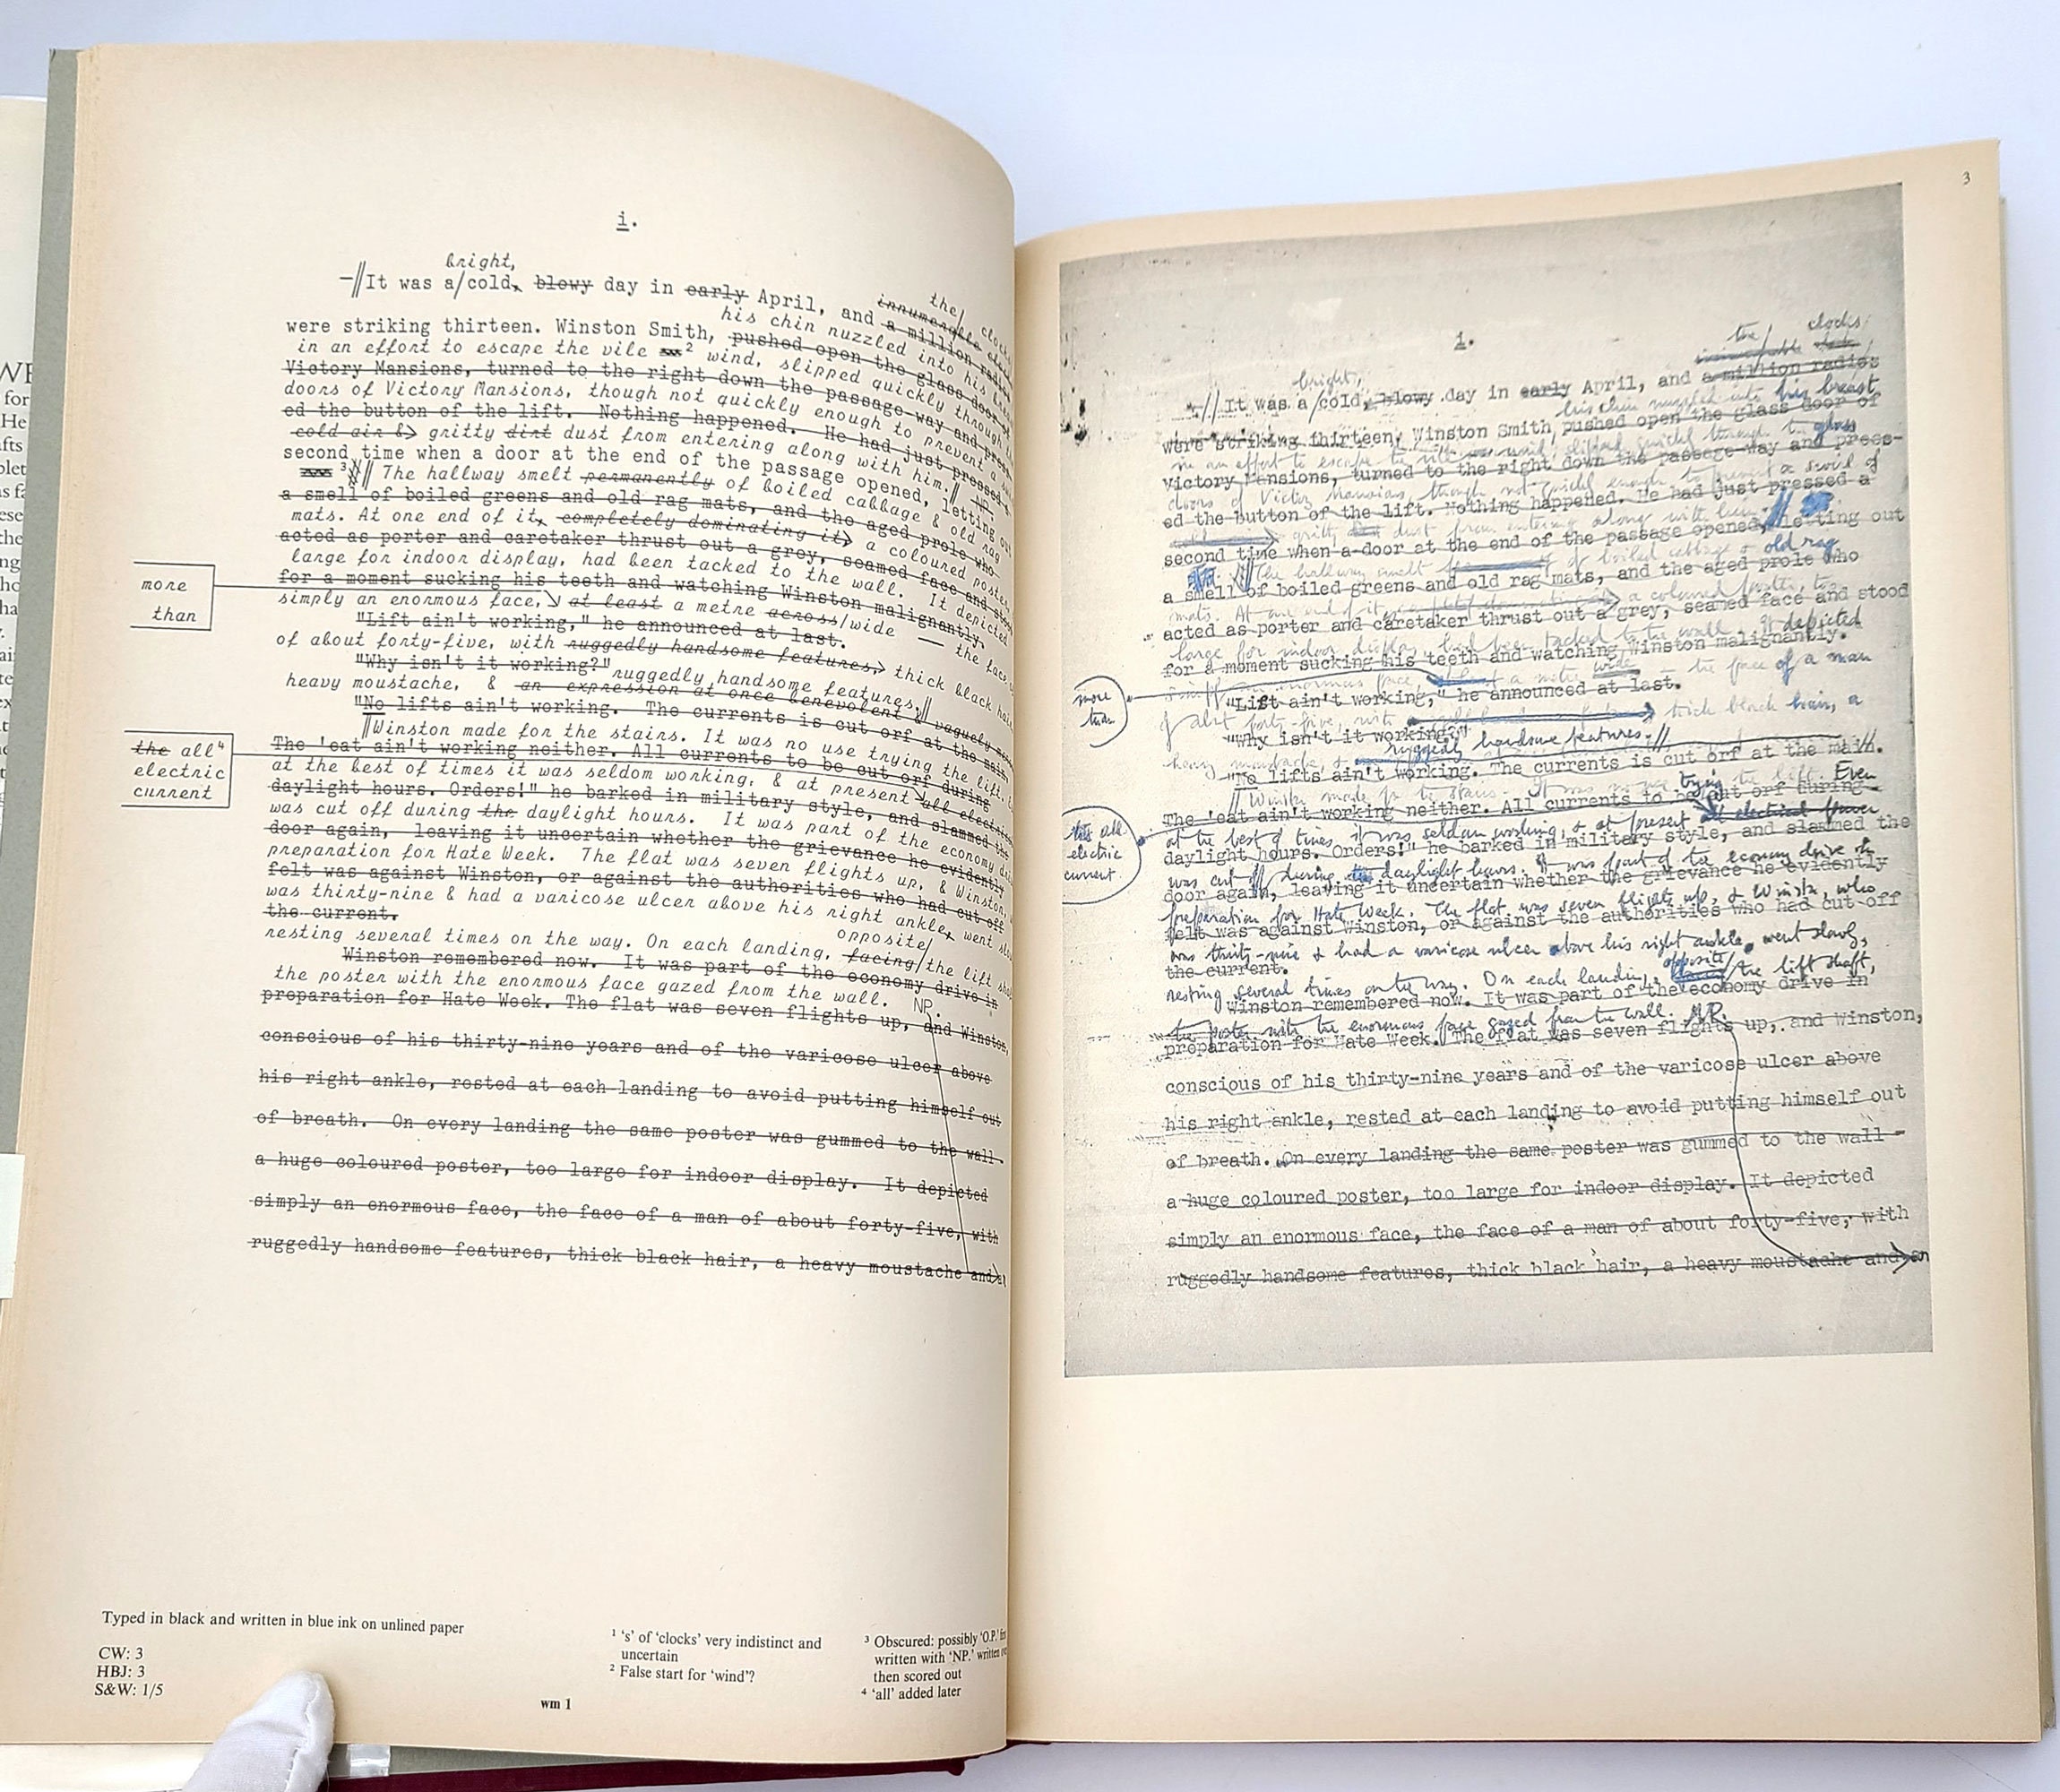 i.
bright,
the/
innumerable
—//It was a/cold, blowy day in early April, and a million radios
his chin nuzzled into his breast
were striking thirteen. Winston Smith, pushed open the glass door of
in an effort to escape the vile ² wind, slipped quickly through
Victory Mansions, turned to the right down the passage-way and press
doors of Victory Mansions, though not quickly enough to prevent a
ed the button of the lift. Nothing happened. He had just pressed a
cold air & gritty dirt dust from entering along with him.//
second time when a door at the end of the passage opened, letting out
³ // The hallway smelt permanently of boiled cabbage & old rag
a smell of boiled greens and old rag mats, and the aged prole who
mats. At one end of it, completely dominating it, a coloured poster,
acted as porter and caretaker thrust out a grey, seamed face and stood
large for indoor display, had been tacked to the wall. It depicted
for a moment sucking his teeth and watching Winston malignantly.
more
than
simply an enormous face, at least a metre across/wide — the face
"Lift ain't working," he announced at last.
of about forty-five, with ruggedly handsome features, thick black hair
"Why isn't it working?"
ruggedly handsome features.//
heavy moustache, & an expression at once benevolent & vaguely
"No lifts ain't working. The currents is cut orf at the main.
//Winston made for the stairs. It was no use trying the lift.
the all⁴
electric
current
The 'eat ain't working neither. All currents to be cut orf during
at the best of times it was seldom working, & at present all electric
daylight hours. Orders!" he barked in military style, and slammed the
was cut off during the daylight hours. It was part of the economy
door again, leaving it uncertain whether the grievance he evidently
preparation for Hate Week. The flat was seven flights up, & Winston,
felt was against Winston, or against the authorities who had cut off
was thirty-nine & had a varicose ulcer above his right ankle, went
the current.
opposite/
resting several times on the way. On each landing, facing/the lift
Winston remembered now. It was part of the economy drive in
the poster with the enormous face gazed from the wall. NP.
preparation for Hate Week. The flat was seven flights up, and Winston,
conscious of his thirty-nine years and of the varicose ulcer above
his right ankle, rested at each landing to avoid putting himself out
of breath. On every landing the same poster was gummed to the wall-
a huge coloured poster, too large for indoor display. It depicted
simply an enormous face, the face of a man of about forty-five, with
ruggedly handsome features, thick black hair, a heavy moustache and
Typed in black and written in blue ink on unlined paper
CW: 3
HBJ: 3
S&W: 1/5
¹ 's' of 'clocks' very indistinct and
uncertain
² False start for 'wind'?
³ Obscured: possibly 'O.P.'
written with 'NP.' written
then scored out
⁴ 'all' added later
wm 1
3
1.
the/ clocks/
innumerable
bright,
// It was a/cold, blowy day in early April, and a million radios
his chin nuzzled into his breast
were striking thirteen, Winston Smith pushed open the glass door of
in an effort to escape the vile wind, slipped quickly through the glass
Victory Mansions, turned to the right down the passage-way and press-
doors of Victory Mansions, though not quickly enough to prevent a swirl of
ed the button of the lift. Nothing happened. He had just pressed a
gritty dust from entering along with him.
second time when a door at the end of the passage opened, letting out
// The hallway smelt of boiled cabbage & old rag
a smell of boiled greens and old rag mats, and the aged prole who
mats. At one end of it, a coloured poster, too
acted as porter and caretaker thrust out a grey, seamed face and stood
large for indoor display, had been tacked to the wall. It depicted
for a moment sucking his teeth and watching Winston malignantly.
more
than
simply an enormous face, a metre wide — the face of a man
"Lift ain't working," he announced at last.
of about forty-five, with thick black hair, a
"Why isn't it working?"
ruggedly handsome features.//
heavy moustache, &
"No lifts ain't working. The currents is cut orf at the main.
// Winston made for the stairs. It was no use trying the lift. Even
the all
electric
current
The 'eat ain't working neither. All currents to be cut orf during
at the best of times it was seldom working, & at present all electrical power
daylight hours. Orders!" he barked in military style, and slammed the
was cut off during the daylight hours. It was part of the economy drive in
door again, leaving it uncertain whether the grievance he evidently
preparation for Hate Week. The flat was seven flights up, & Winston, who
felt was against Winston, or against the authorities who had cut off
was thirty-nine & had a varicose ulcer above his right ankle, went slowly,
the current.
opposite/
resting several times on the way. On each landing, facing/the lift shaft,
Winston remembered now. It was part of the economy drive in
the poster with the enormous face gazed from the wall. NP.
preparation for Hate Week. The flat was seven flights up, and Winston,
conscious of his thirty-nine years and of the varicose ulcer above
his right ankle, rested at each landing to avoid putting himself out
of breath. On every landing the same poster was gummed to the wall-
a huge coloured poster, too large for indoor display. It depicted
simply an enormous face, the face of a man of about forty-five, with
ruggedly handsome features, thick black hair, a heavy moustache and an